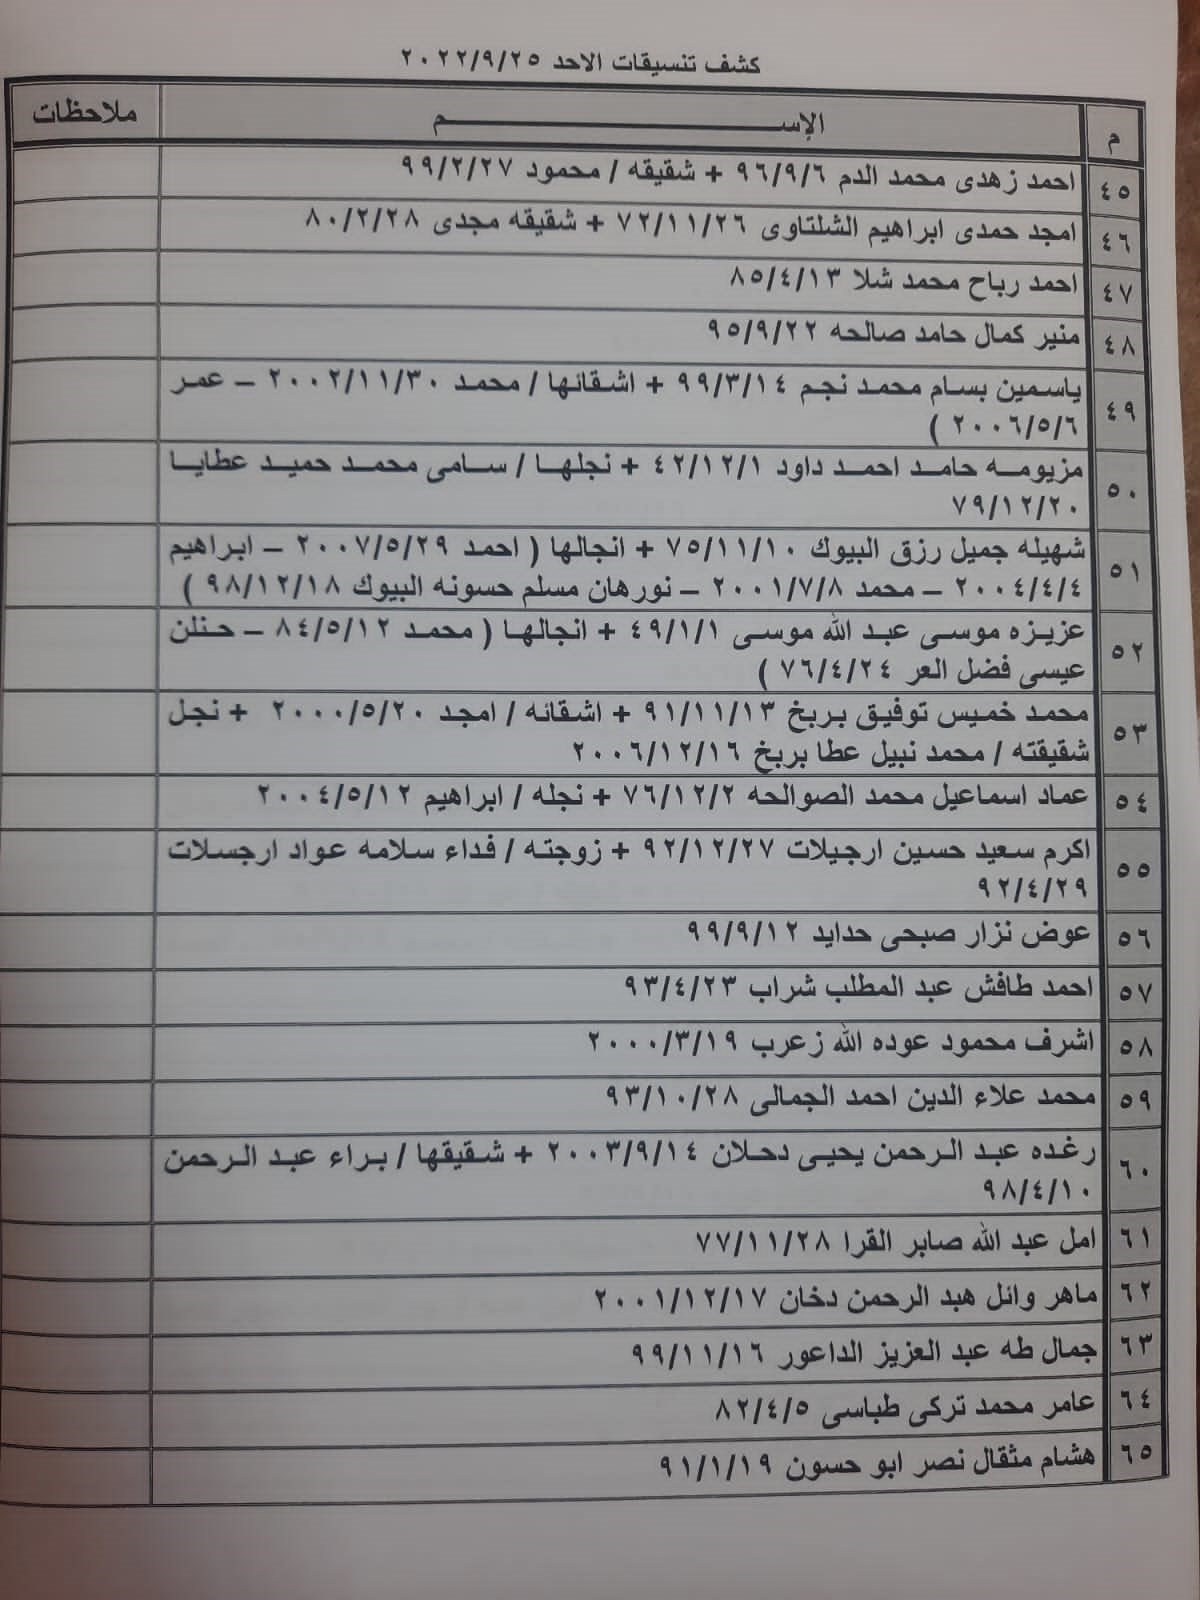 كشف تنسيقات الاحد ٢٠٢٢/٩/٢٥
م الإســـــم ملاحظات
٤٥ احمد زهدى محمد الدم ٩٦/٩/٦ + شقيقه / محمود ٩٩/٢/٢٧
٤٦ امجد حمدى ابراهيم الشلتاوى ٧٢/١١/٢٦ + شقيقه مجدى ٨٠/٢/٢٨
٤٧ احمد رباح محمد شلا ٨٥/٤/١٣
٤٨ منير كمال حامد صالحه ٩٥/٩/٢٢
٤٩ ياسمين بسام محمد نجم ٩٩/٣/١٤ + اشقائها / محمد ٢٠٠٢/١١/٣٠ – عمر
٢٠٠٦/٥/٦ )
٥٠ مزيومه حامد احمد داود ٤٢/١٢/١ + نجلها / سامى محمد حميد عطايا
٧٩/١٢/٢٠
٥١ شهيله جميل رزق البيوك ٧٥/١١/١٠ + انجالها ( احمد ٢٠٠٧/٥/٢٩ – ابراهيم
٢٠٠٤/٤/٤ – محمد ٢٠٠١/٧/٨ – نورهان مسلم حسونه البيوك ٩٨/١٢/١٨ )
٥٢ عزيزه موسى عبد الله موسى ٤٩/١/١ + انجالها ( محمد ٨٤/٥/١٢ – حنلن
عيسى فضل العر ٧٦/٤/٢٤ )
٥٣ محمد خميس توفيق بربخ ٩١/١١/١٣ + اشقائه / امجد ٢٠٠٠/٥/٢٠ + نجل
شقيقته / محمد نبيل عطا بربخ ٢٠٠٦/١٢/١٦
٥٤ عماد اسماعيل محمد الصوالحه ٧٦/١٢/٢ + نجله / ابراهيم ٢٠٠٤/٥/١٢
٥٥ اكرم سعيد حسين ارجيلات ٩٢/١٢/٢٧ + زوجته / فداء سلامه عواد ارجسلات
٩٢/٤/٢٩
٥٦ عوض نزار صبحى حدايد ٩٩/٩/١٢
٥٧ احمد طافش عبد المطلب شراب ٩٣/٤/٢٣
٥٨ اشرف محمود عوده الله زعرب ٢٠٠٠/٣/١٩
٥٩ محمد علاء الدين احمد الجمالى ٩٣/١٠/٢٨
٦٠ رغده عبد الرحمن يحيى دحلان ٢٠٠٣/٩/١٤ + شقيقها / براء عبد الرحمن
٩٨/٤/١٠
٦١ امل عبد الله صابر القرا ٧٧/١١/٢٨
٦٢ ماهر وائل هبد الرحمن دخان ٢٠٠١/١٢/١٧
٦٣ جمال طه عبد العزيز الداعور ٩٩/١١/١٦
٦٤ عامر محمد تركى طباسى ٨٢/٤/٥
٦٥ هشام مثقال نصر ابو حسون ٩١/١/١٩